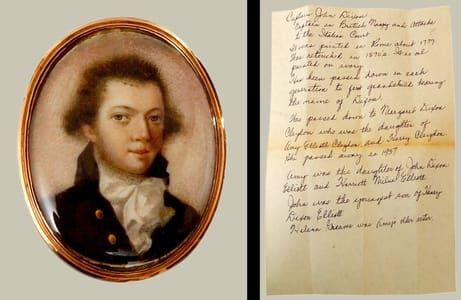 Captain John Dixon
Captain in British Navy and Attache
to the Italian Court
It was painted in Rome about 1779
Was retouched in 1870's. It is oil
painted on ivory
Has been passed down in each
generation to first grandchild bearing
the name of Dixon.
Was passed down to Margaret Dixon
Clogdon who was the daughter of
Amy Elliott Clogdon and Harry Clogdon
She passed away in 1957
Amy was the daughter of John Dixon
Elliott and Harriett Elliott
John was the youngest son of Henry
Dixon Elliott
was Amy's older sister.